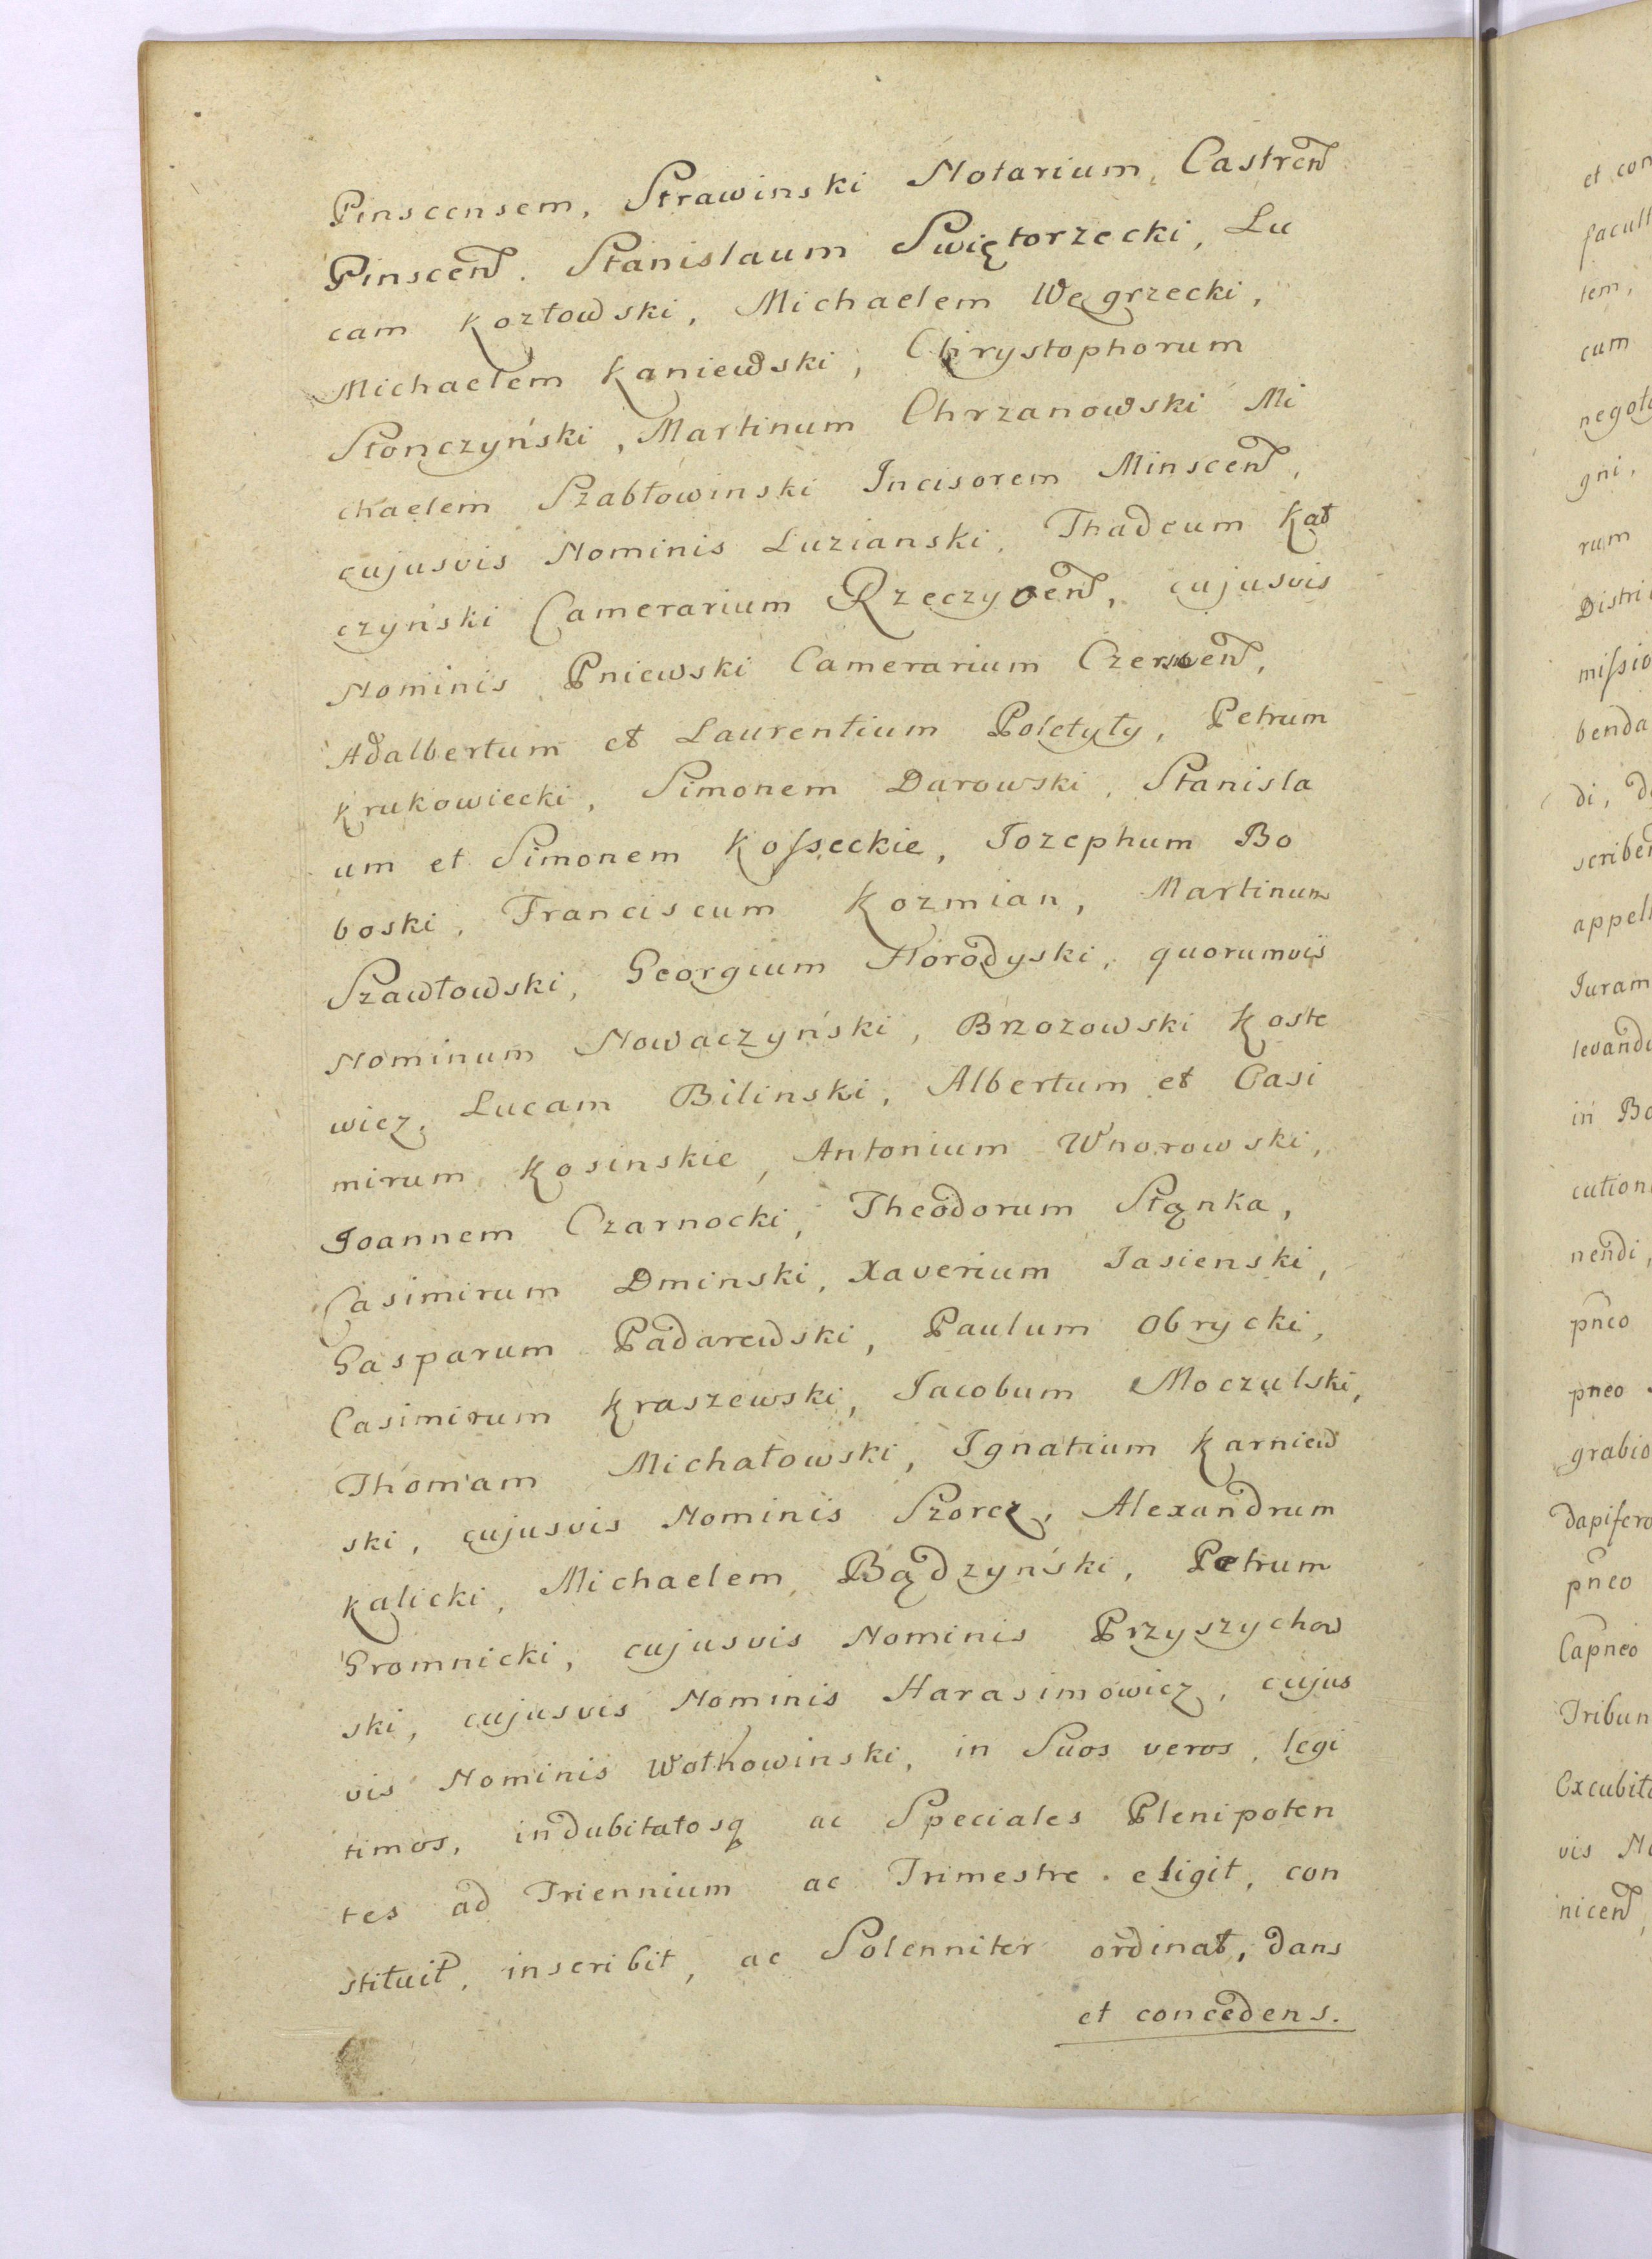 Pinscensem, Strawinski Notarium, Castren
Pinscen. Stanislaum Swiętorzecki, Lu
cam Kozłowski, Michaelem Węgrzecki,
Michaelem Kaniewski, Chrystophorum
Słonczyński, Martinum Chrzanowski Mi
chaelem Szabłowinski Incisorem Minscen,
cujusvis Nominis Luzianski, Thadeum Kał
czyński Camerarium Rzeczycen, cujusvis
Nominis Pniewski Camerarium Czerscen,
Adalbertum et Laurentium Poletyły, Petrum
Krukowiecki, Simonem Darowski, Stanisla
um et Simonem Kosseckie, Jozephum Bo
boski, Franciscum Kozmian, Martinum
Szawłowski, Georgium Horodyski, quorumvis
Nominum Nowaczyński, Brzozowski Koste
wicz, Lucam Bilinski, Albertum et Casi
mirum Kosinskie, Antonium Wnorowski,
Joannem Czarnocki, Theodorum Stąnka,
Casimirum Dminski, Xaverium Jasienski,
Gasparum Padarewski, Paulum Obrycki,
Casimirum Kraszewski, Jacobum Moczulski,
Thomam Michałowski, Ignatium Karniew
ski, cujusvis Nominis Szorcz, Alexandrum
Kalicki, Michaelem Bądzyński, Petrum
Gromnicki, cujusvis Nominis Przyszychow
ski, cujusvis Nominis Harasimowicz, cujus
vis Nominis Wołkowinski, in Suos veros, legi
timos, indubitatosq ac Speciales Plenipoten
tes ad Triennium ac Trimestre eligit, con
stituit, inscribit, ac Solenniter ordinat, dans
et concedens.
et con
facult
tem,
cum
negot
gni,
rum
Distri
missio
benda
di, d
scribe
appell
Juram
levand
in Bo
cution
nendi,
pneo
pneo
grabio
dapifero
pneo
Capneo
Tribun
Excubit
vis No
nicen